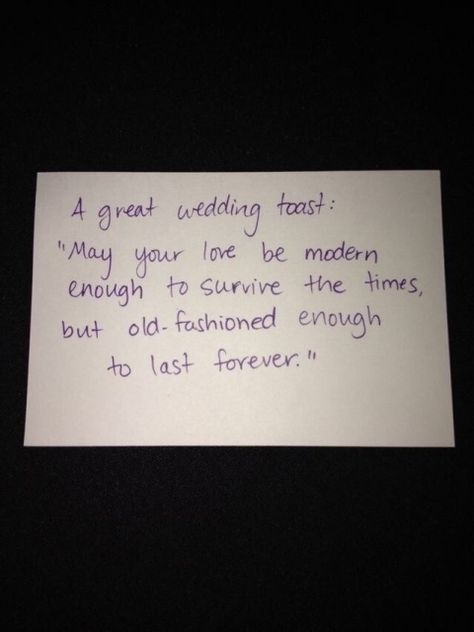 A great wedding toast:
"May your love be modern
enough to survive the times,
but old-fashioned enough
to last forever."